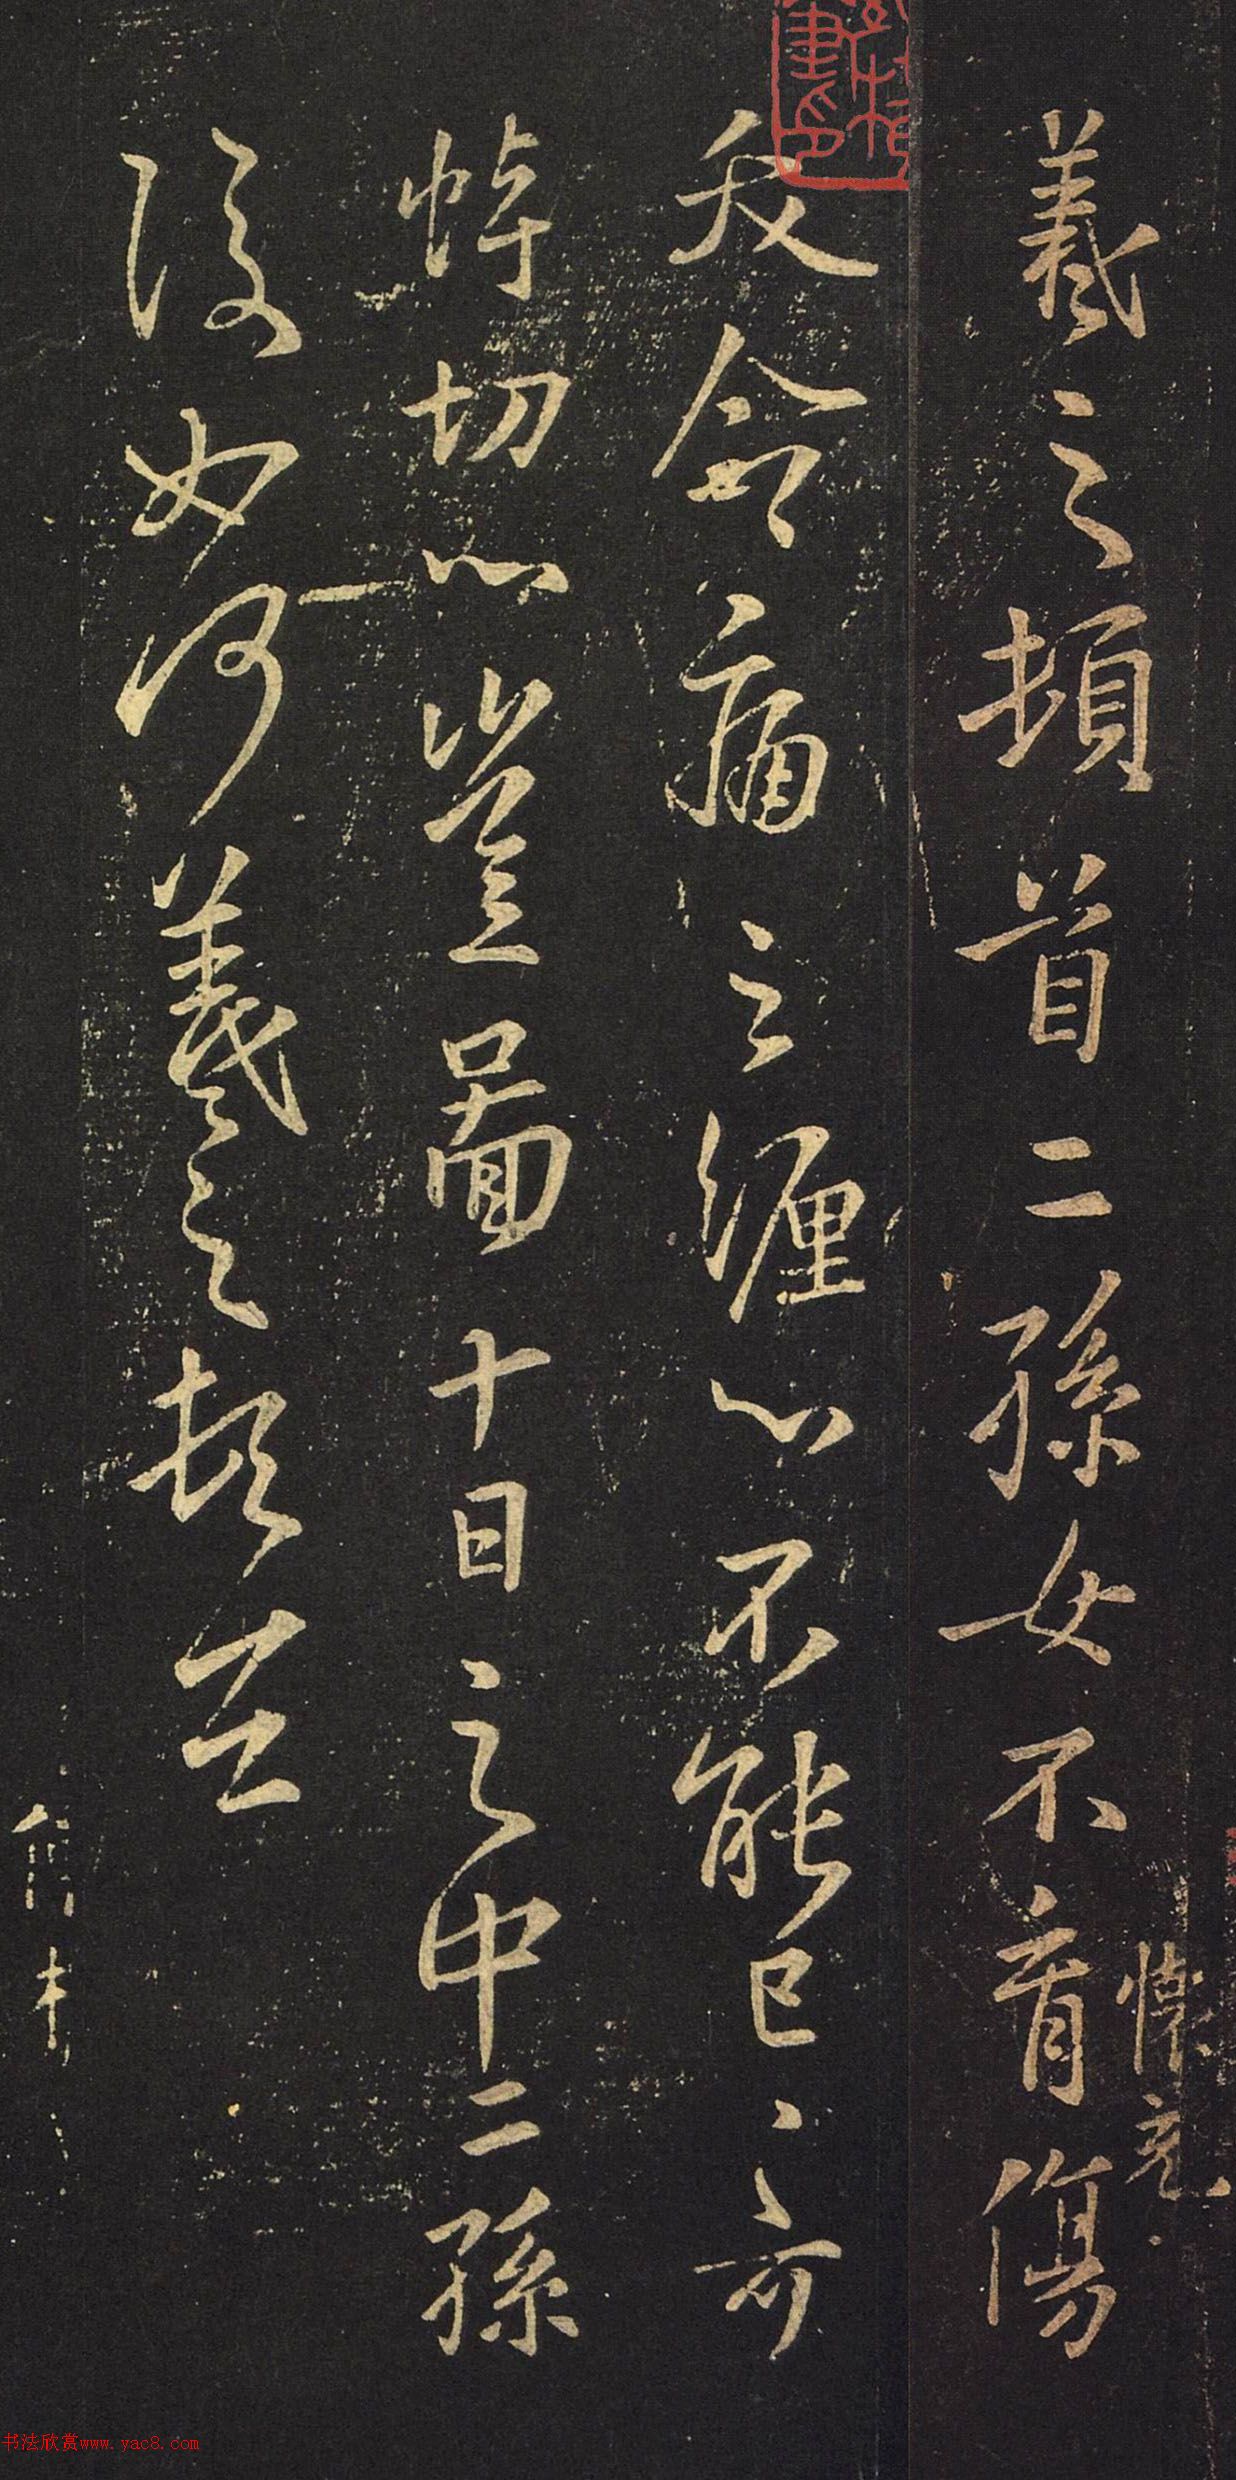 羲之頓首二孫女不育傷
懷充
及今痛之纏心不能已已可
悼切心豈圖十日之中二孫
没如何羲之頓首
書印
书法欣赏www.yac8.com